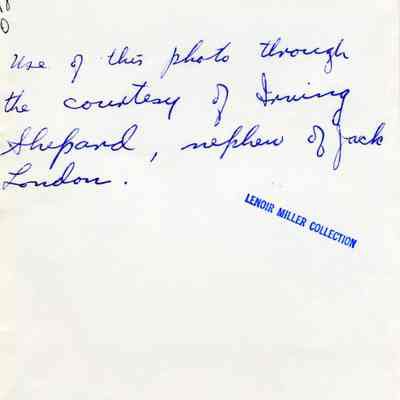 Use of this photo through
the courtesy of Irving
Shepard, nephew of Jack
London.
LENOIR MILLER COLLECTION